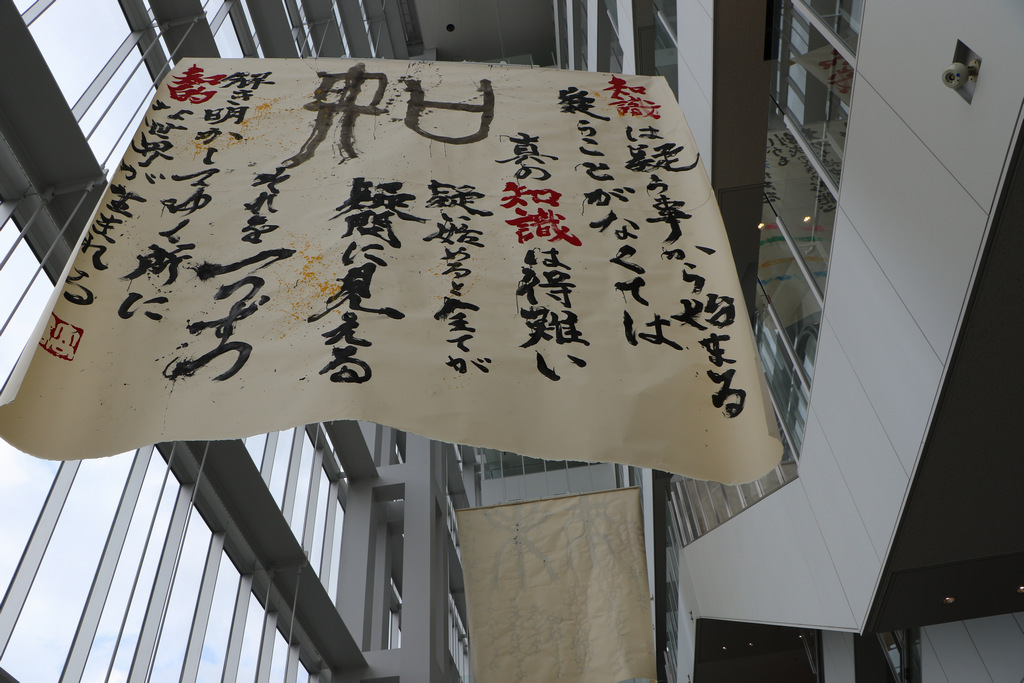 知識は疑う事から始まる
疑うことがなくては
真の知識は得難い
疑始めると全てが
疑問に見える
それを一つずつ
解き明かしてゆく所に
知的な世界が生まれる